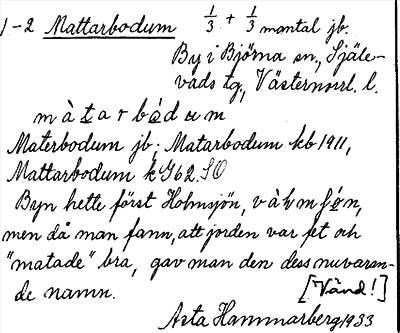 1-2 Mattarbodum 1/3 + 1/3 mantal jb.
By i Björna sn, Själe-
vads tg, Västernorrl. l.
màtarbódum
Materbodum jb; Matarbodum kb 1911,
Mattarbodum k G62. SO
Byn hette först Holmsjön,
men då man fann, att jorden var fet och
"matade" bra, gav man den dess nuvaran-
de namn. [Vänd!]
Asta Hammarberg 1933